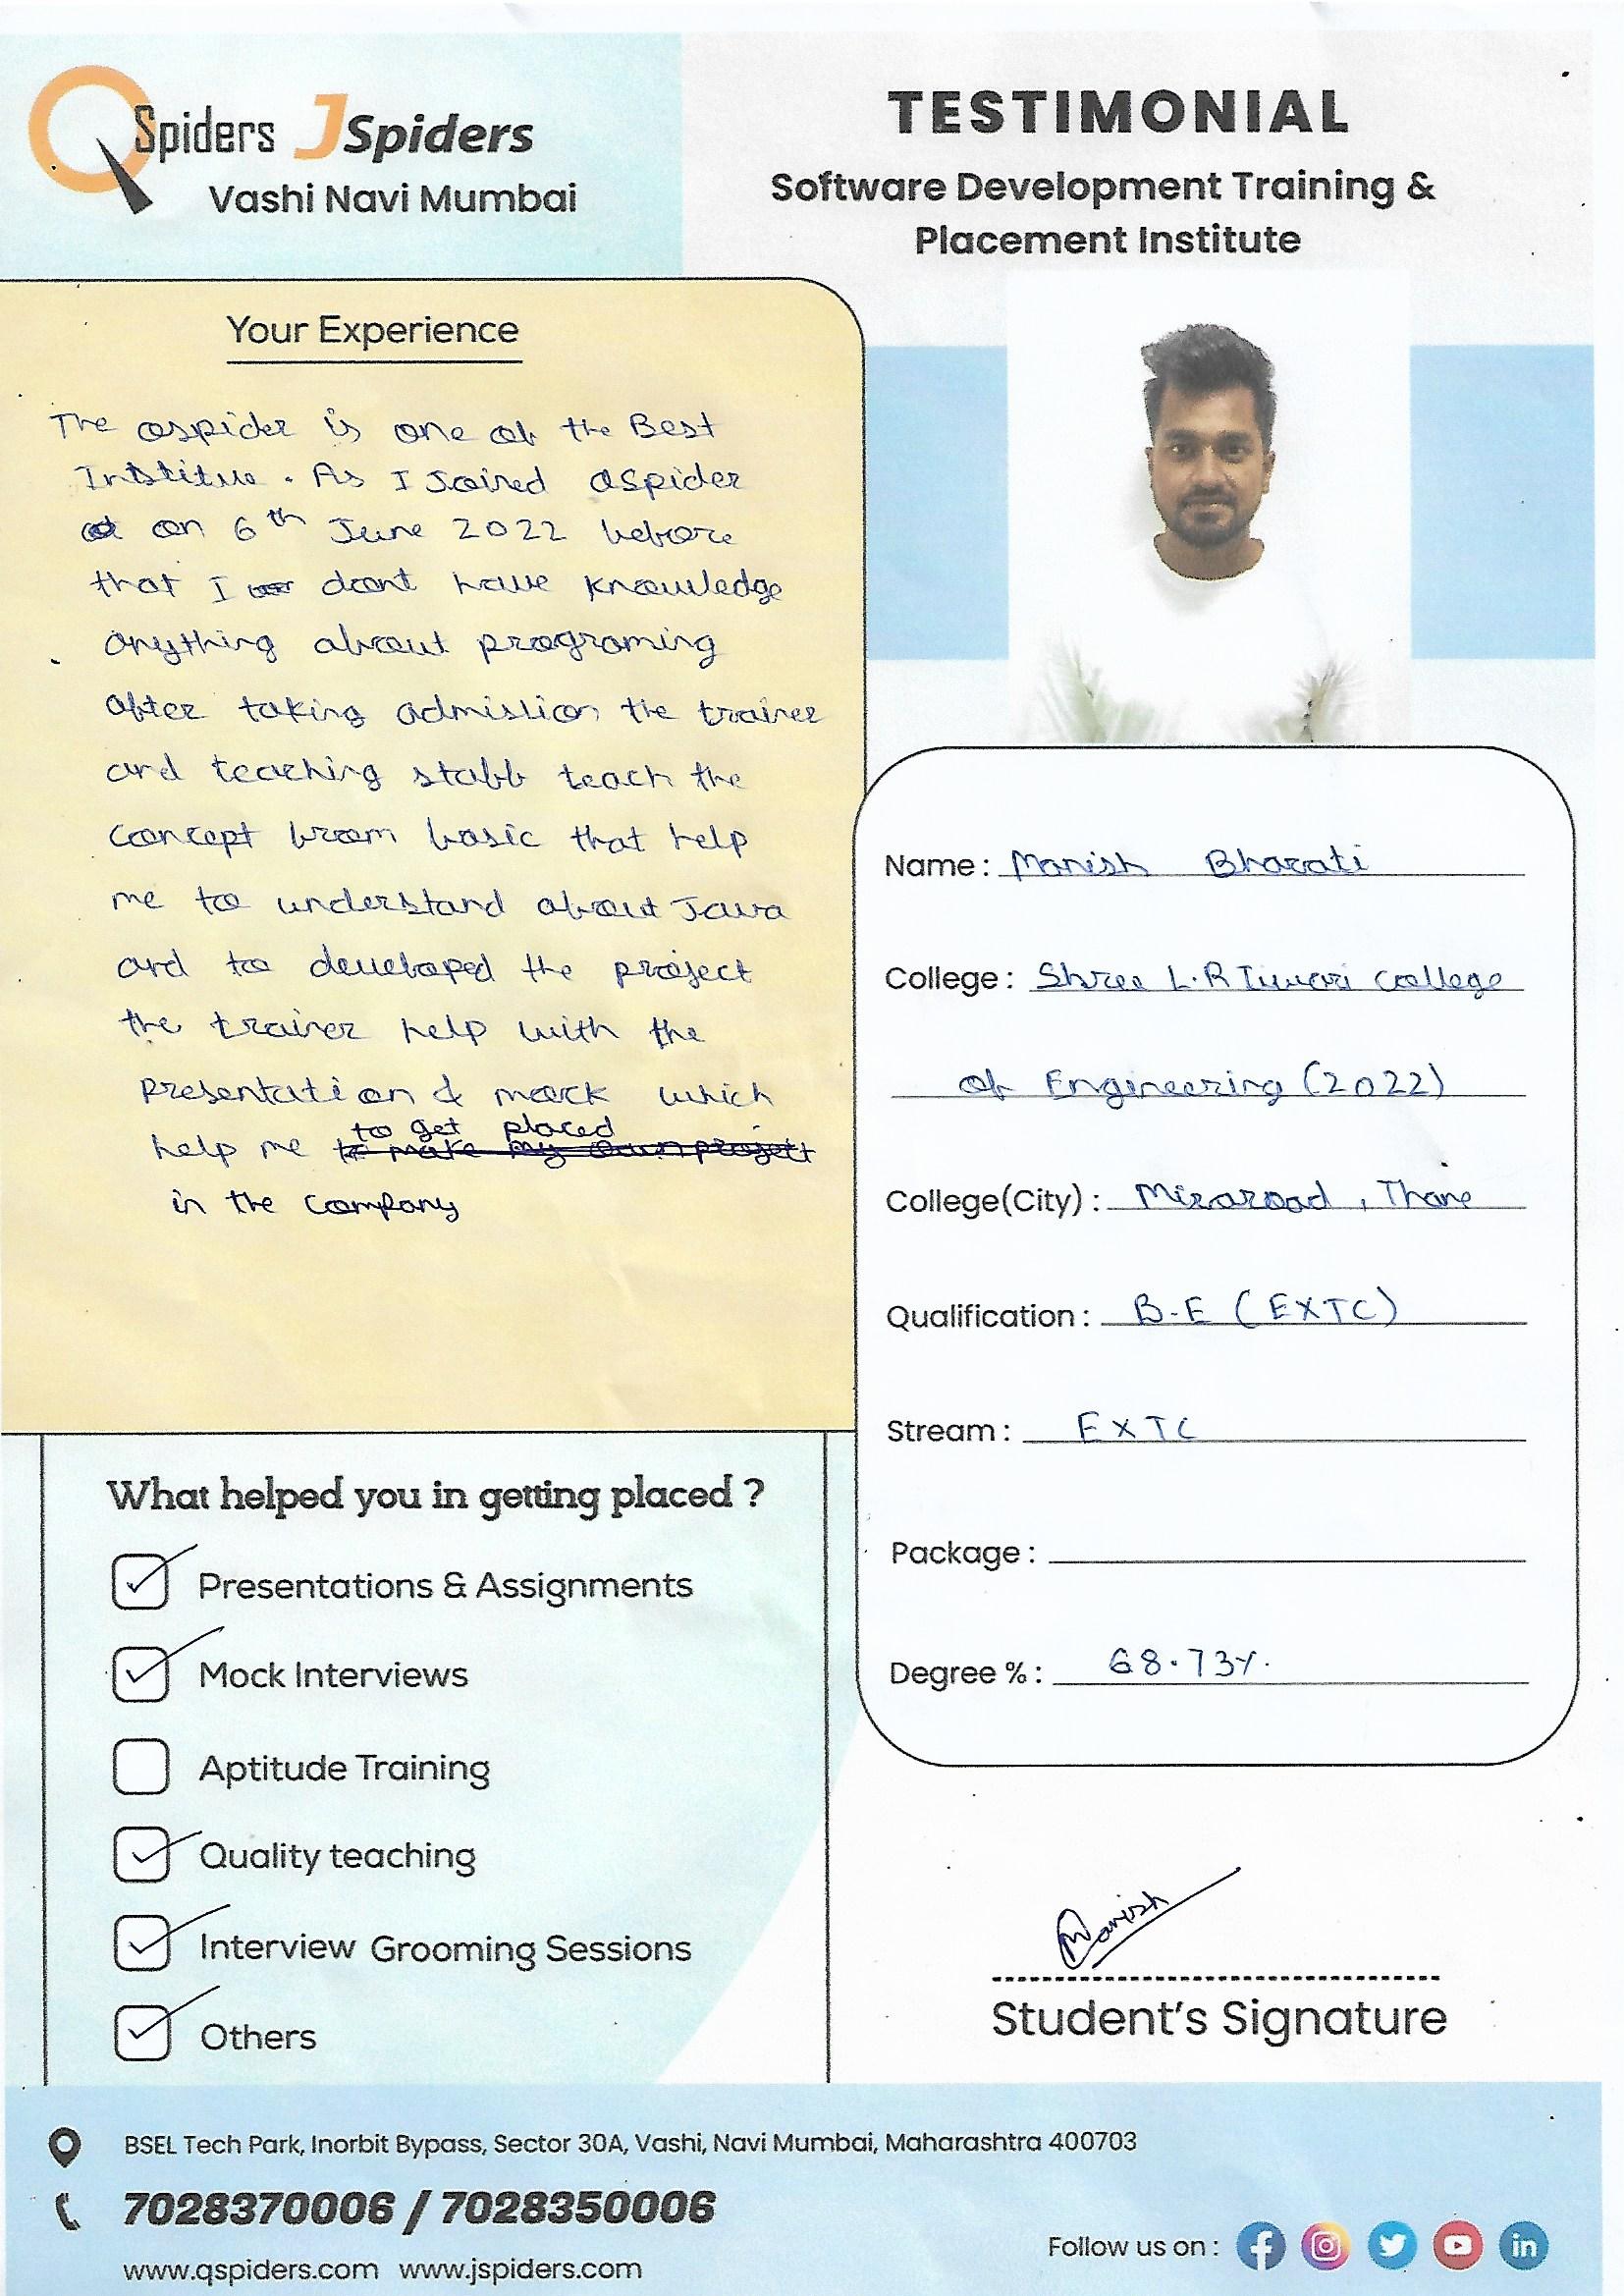 QSpiders JSpiders
Vashi Navi Mumbai
TESTIMONIAL
Software Development Training &
Placement Institute
Your Experience
The Qspider is one of the Best
Institue. As I Joined QSpider
on 6th June 2022 before
that I dont have knowledge
anything about programing
after taking admistion the trainer
and teaching staff teach the
concept from basic that help
me to understand about Java
and to developed the project
the trainer help with the
Presentation & mock which
to get placed
help me to make my own project
in the company
Name : Manish Bharati
College : Shree L.R Tiwari college
of Engineering (2022)
College(City) : Miraroad , Thane
Qualification : B.E (EXTC)
Stream : EXTC
Package :
Degree % : 68.73%.
What helped you in getting placed ?
Presentations & Assignments
Mock Interviews
Aptitude Training
Quality teaching
Interview Grooming Sessions
Others
Manish
Student's Signature
BSEL Tech Park, Inorbit Bypass, Sector 30A, Vashi, Navi Mumbai, Maharashtra 400703
7028370006 / 7028350006
www.qspiders.com www.jspiders.com
Follow us on :